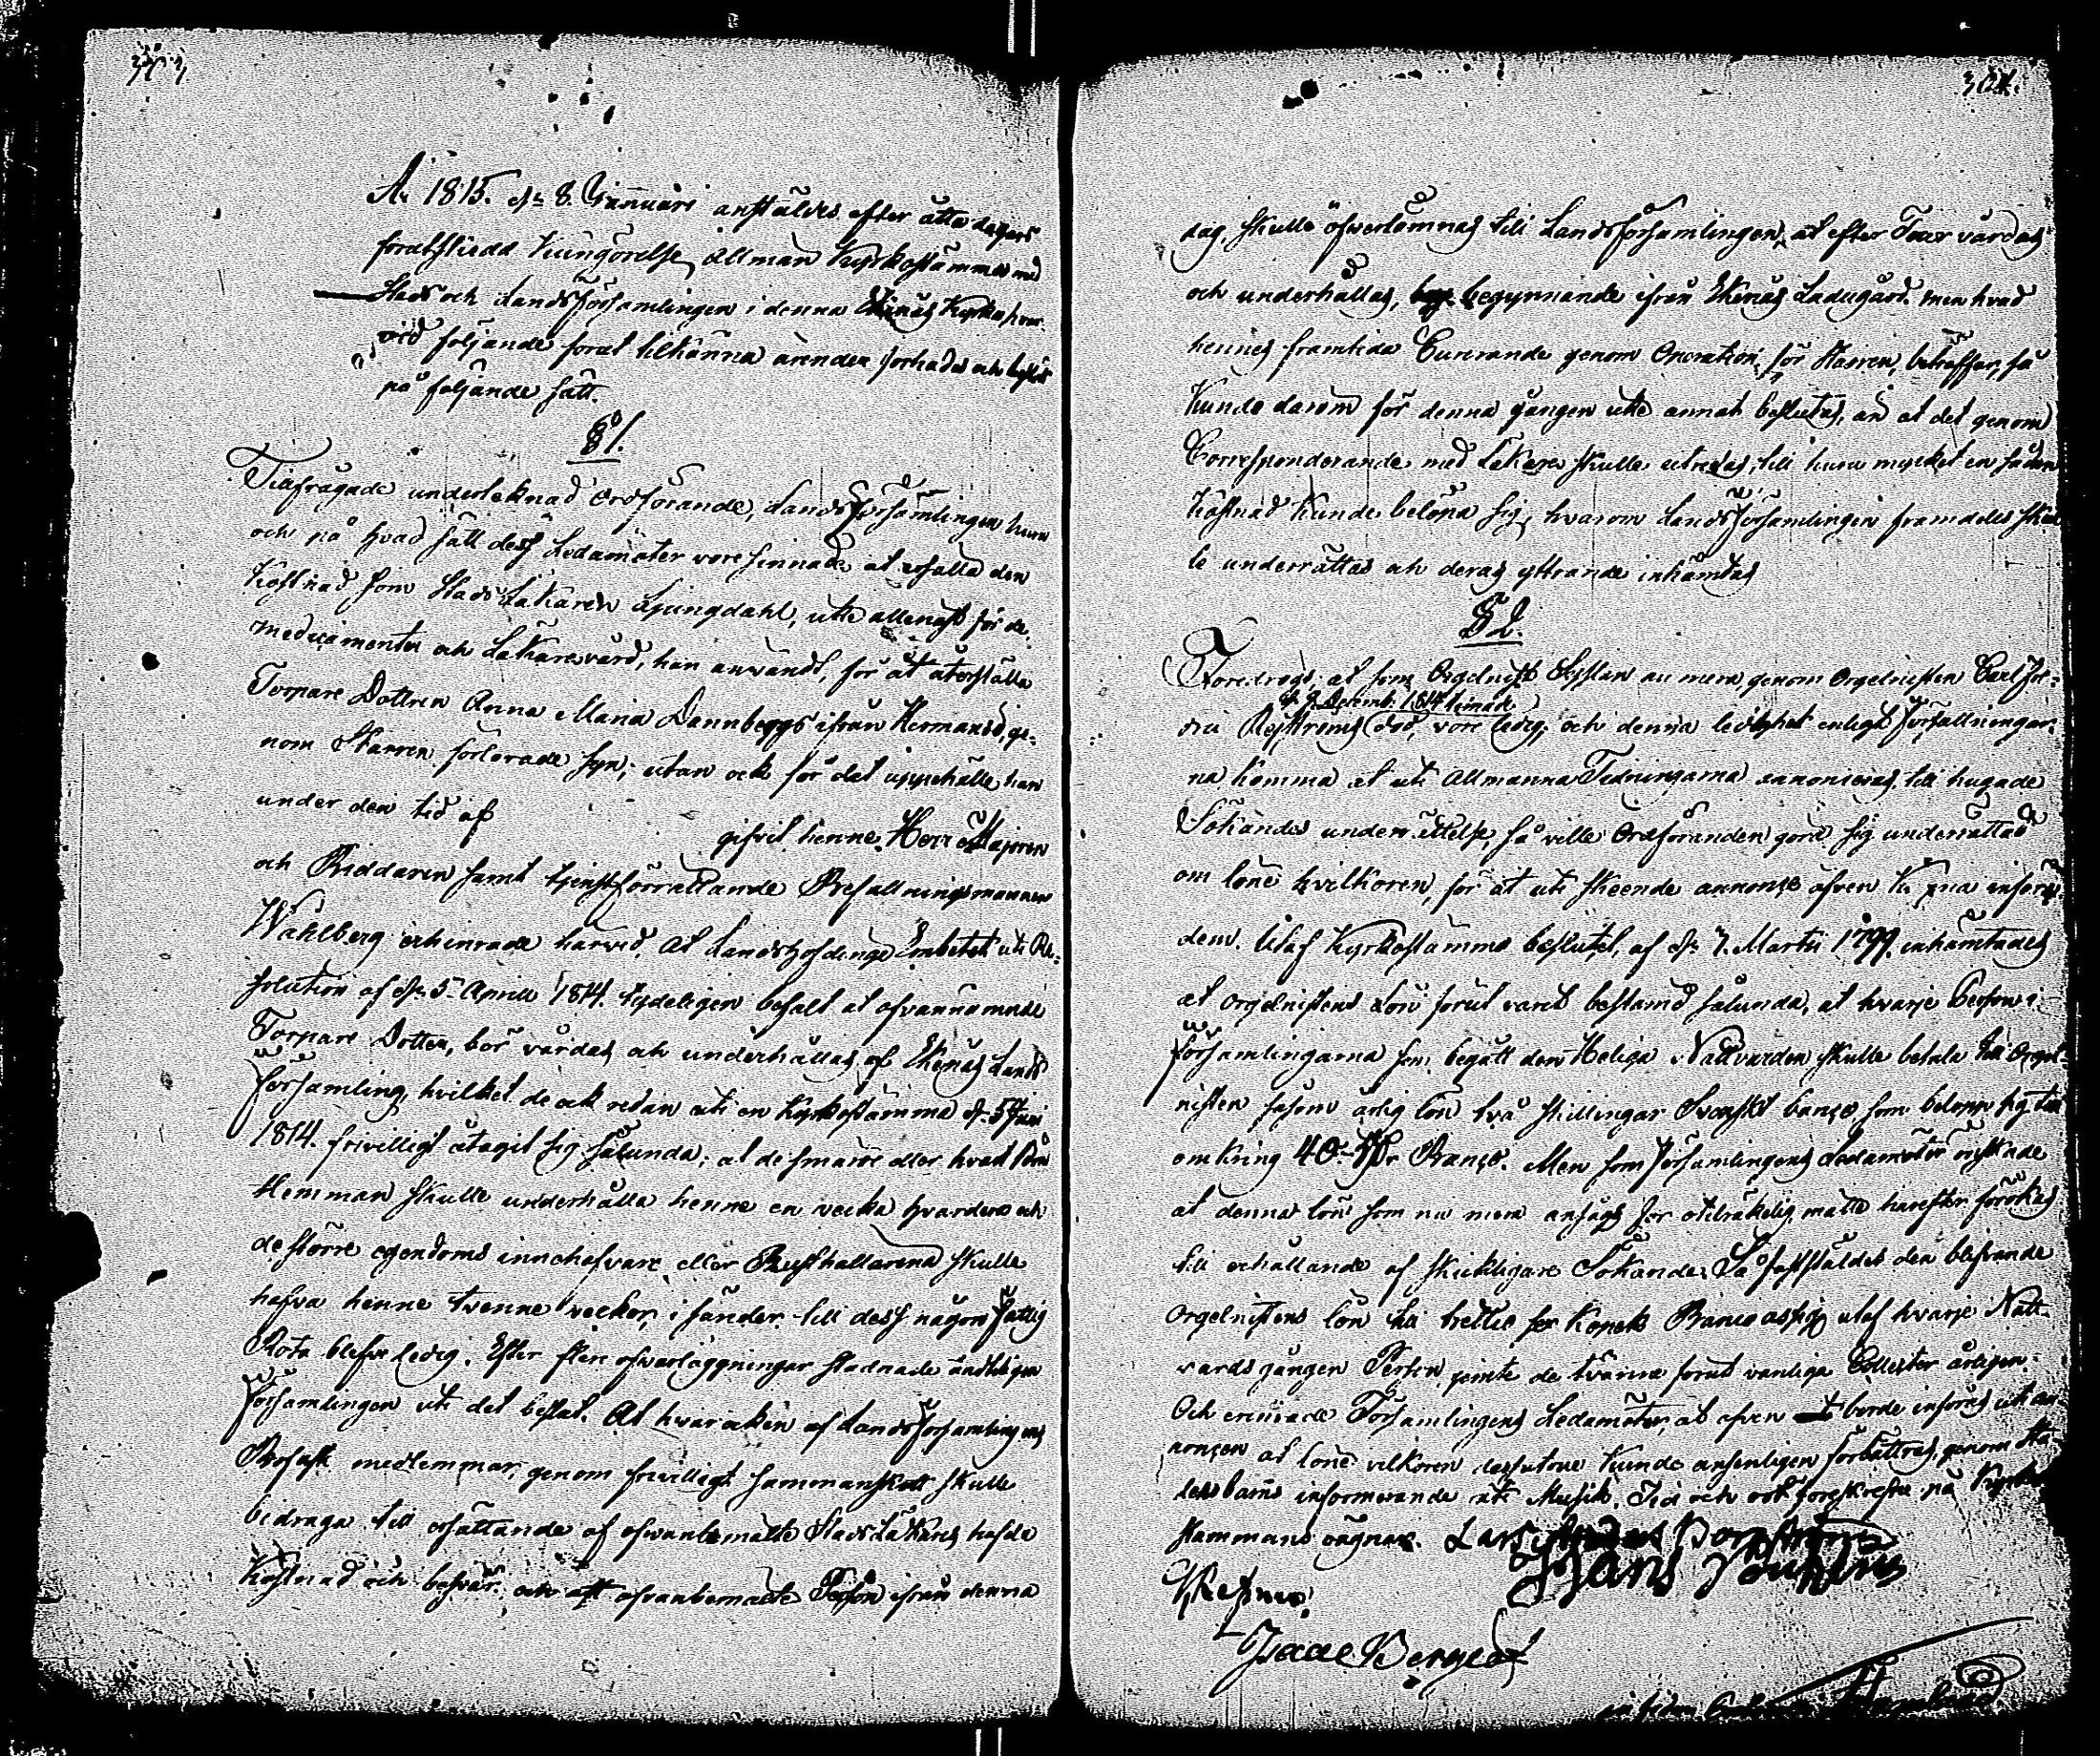 Ao 1815. dn 8. Januari anstäldes efter åtta dagars
förutskiedd kungörelse, allmän Kyrkostämma med
Stads och Landsförsamlingen i denna Ekenäs Kyrka, hvar-
vid följande förut tilkänna ärender förhades och beslöts
på följande sätt.
§ 1.
Tillfrågade undertecknad Ordförande, Landsförsamlingen huru
och på hvad sätt dess Ledamöter vore sinnade at ersätta den
Kostnad som Stads Läkaren Ljungdahl, icke allenast för de
medicamenter och Läkarevård, han användt, för at återställa
Torpare Dottren Anna Maria Dannbergs ifrån Hermansö, ge-
nom Starren förlorade syn; utan ock för det uppehälle han
under den tid af
gifvit henne. Herr Majoren
och Riddaren samt tjenstförrättande Befallningsmannen
Wahlberg erhinrade härvid. At Landshöfdinge Embetet uti Re-
solution af dn 5 Aprill 1814. tydeligen befalt at ofvannämnde
Torpare Dotter, bör vårdas och underhållas af Ekenäs Lands
församling, hvilket de ock redan uti en Kyrkostämma dn 5 Juni
1814. frivilligt åtagit sig sålunda; at de smärre eller hvart
Hemman skulle underhålla henne en vecka hvardera och
de större egendoms innehafvare eller Rusthållarena skulle
hafva henne tvenne veckor i sänder till dess någon fattig
Rota blefve ledig. Efter flere öfverläggningar stadnade ändteligen
församlingen uti det beslut. At hvar och en af Landsförsamlingens
Besutt medlemmar, genom frivilligt sammanskott skulle
bidraga till ersättande af ofvanbemälte Stads Läkares hafde
Kostnad och besvär. och at ofvanbemälte Person ifrån denna
304.
dag, skulle öfverlämnas till Landsförsamlingen, at efter Tour vårdas
och underhållas, begynnande ifrån Ekenäs Ladugård. men hvad
hennes framtida Curerande genom Operation för Starren, beträffar, så
kunde darom för denna gången icke annat beslutas, än at det genom
Corresponderande med Läkare skulle utredas, till huru mycket en sådan
Kostnad kunde belöpa sig, hvarom Landsförsamlingen framdeles skul
le underrättas och deras yttrande inhämtas
§ 2.
Föredrogs; at som Orgelnist Sysslan nu mera, genom Orgelnisten Carl
död, vore ledig, och denna ledighet enligt Författningar-
Decemb. 1814 timade
na komma at uti Allmänna Tidningarna annonceras, till hugade
Sökandes underrättelse, så ville Ordföranden göra sig underrättad
om löne vilkoren, för at uti skeende annonçe äfven kunna införa
dem. Utaf Kyrkostämmo beslutet, af dn 7. Martii 1799. inhämtades
at orgelnistens lön förut varit bestämd sålunda, at hvarje Person i
församlingarna som begått den Heliga Nattvarden skulle betala till Orgel-
nisten såsom årlig lön två skillingar Svenskt banço som belöpa sig till
omkring 40 Rdr Banço. Men som Församlingens Ledamöter önskade
at denna lön som nu mera ansågs för otilräkelig måtte härefter förökas
till erhållande af skickligare Sökande; Så fastställdes den blifvande
Orgelnistens lön till trettio sex Kopek Banco assign utaf hvarje Natt-
vards gången Person jemte de tvänne förut vanliga Collecter årligen.
Och erinrade Församlingens Ledamöter, at äfven borde införas uti an-
nonçen at löne vilkoren dessutom kunde ansenligen förbättras, genom Stä-
dernas barns informerande uti Musik. Tid och ort föreskrefne på Kyrko
stämmans vägnar. Lars Borgström
Hans
Isaac Berged